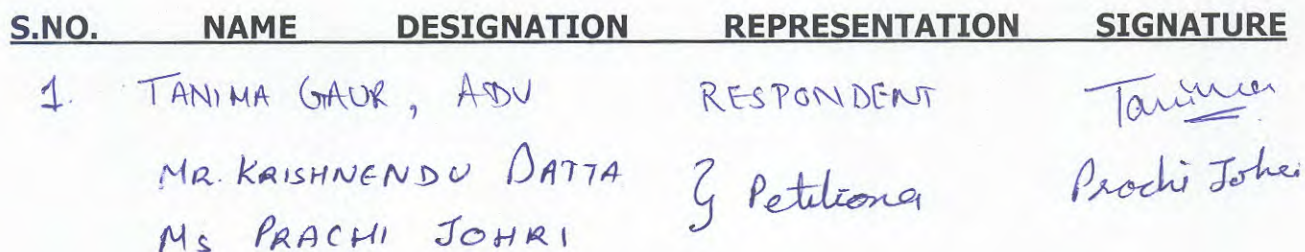 S.NO. NAME DESIGNATION REPRESENTATION SIGNATURE
1. TANIMA GAUR, ADV RESPONDENT Tanima
MR. KRISHNENDU DATTA } Petitioner Prachi Johri
Ms PRACHI JOHRI